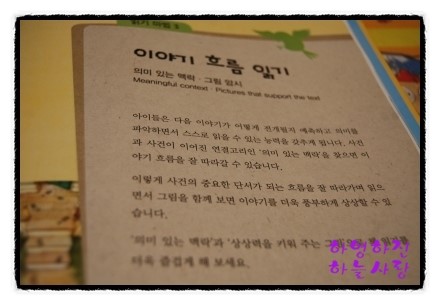 읽기 마법 3
이야기 흐름 읽기
의미 있는 맥락 · 그림 암시
Meaningful context · Pictures that support the text
아이들은 다음 이야기가 어떻게 전개될지 예측하고 의미를
파악하면서 스스로 읽을 수 있는 능력을 갖추게 됩니다. 사건
과 사건이 이어진 연결고리인 '의미 있는 맥락'을 찾으면 이
야기 흐름을 잘 따라갈 수 있습니다.
이렇게 사건의 중요한 단서가 되는 흐름을 잘 따라가며 읽으
면서 그림을 함께 보면 이야기를 더욱 풍부하게 상상할 수 있
습니다.
'의미 있는 맥락'과 '상상력을 키워 주는
더욱 즐겁게 해 보세요.
하영하진
하늘사랑